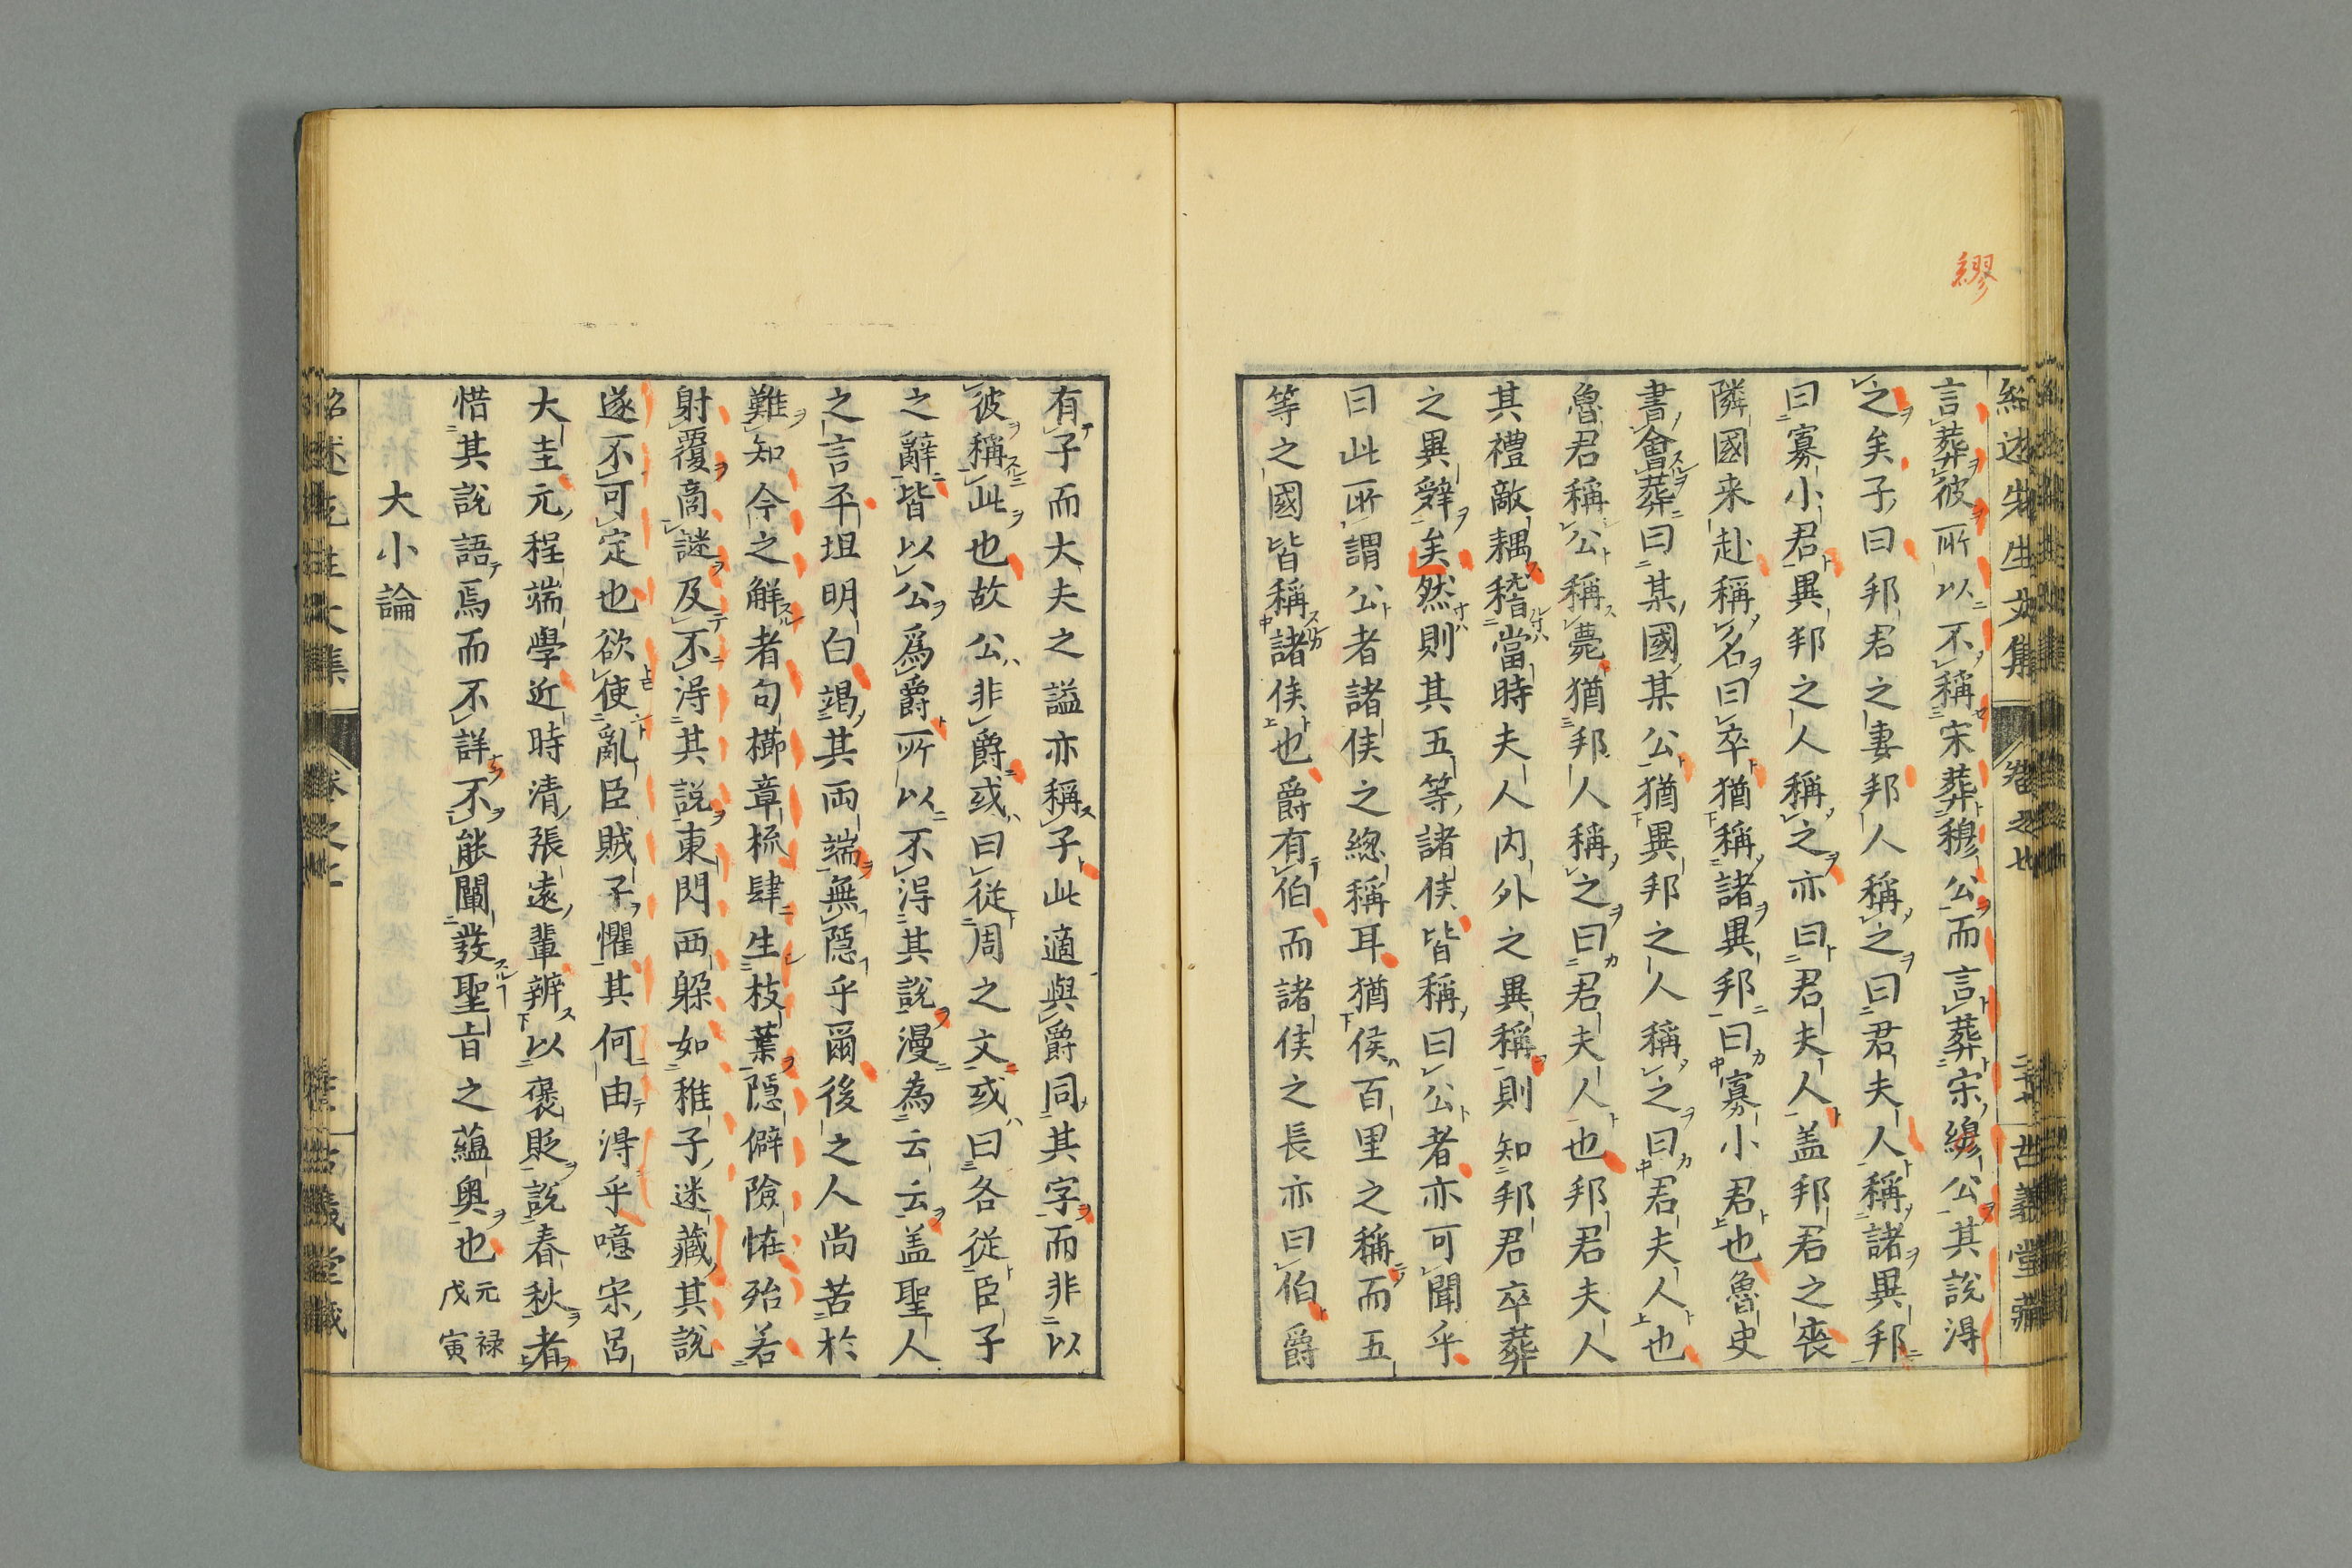 繆
紹述先生文集 卷之七 古義堂藏
言葬彼所以不稱宋葬穆公而言葬宋繆公其說得
之矣子曰邦君之妻邦人稱之曰君夫人稱諸異邦
曰寡小君異邦之人稱之亦曰君夫人盖邦君之喪
隣國来赴稱名曰卒猶稱諸異邦曰寡小君也魯史
書會葬曰某國某公猶異邦之人稱之曰君夫人也
魯君稱公稱薨猶邦人稱之曰君夫人也邦君夫人
其禮敵耦稽當時夫人内外之異稱則知邦君卒葬
之異辤矣然則其五等諸侯皆稱曰公者亦可聞乎
曰此所謂公者諸侯之總稱耳猶侯百里之稱而五
等之國皆稱諸侯也爵有伯而諸侯之長亦曰伯爵
有子而大夫之謚亦稱子此適與爵同其字而非以
彼稱此也故公非爵或曰従周之文或曰各従臣子
之辭皆以公爲爵所以不得其說漫為云云盖聖人
之言平坦明白竭其両端無隱乎爾後之人尚苦於
難知今之解者句櫛章梳肆生枝葉隱僻險恠殆若
射覆商謎及不得其說東閃西躱如稚子迷藏其說
遂不可定也欲使亂臣賊子懼其何由得乎噫宋呂
大圭元程端學近時清張遠輩辨以褒貶說春秋者
惜其說語焉而不詳不能闡發聖旨之蘊奥也 元禄戊寅
大小論